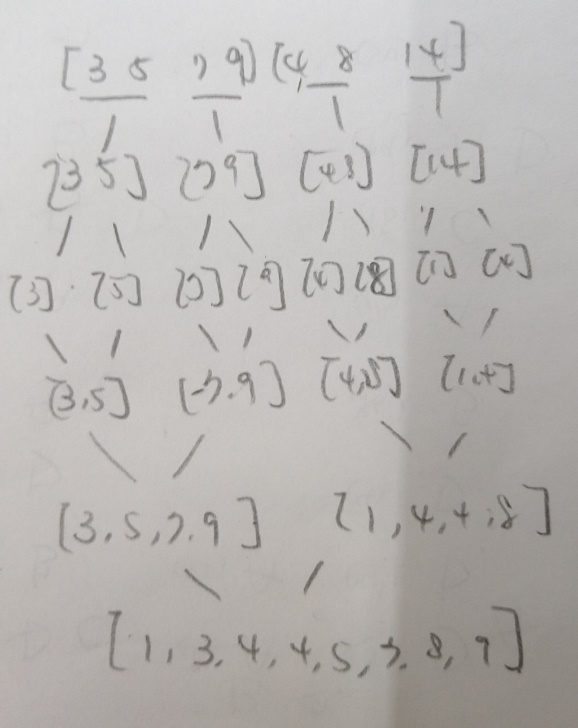 [3 5 7 9] [4 8 1 4]
[3 5] [7 9] [4 8] [1 4]
[3] [5] [7] [9] [4] [8] [1] [4]
[3, 5] [7, 9] [4, 8] [1, 4]
[3, 5, 7, 9] [1, 4, 4, 8]
[1, 3, 4, 4, 5, 7, 8, 9]